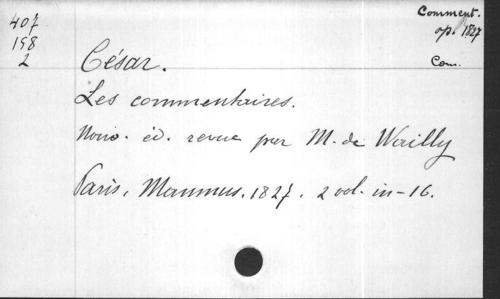 407
198
2
Comment.
op. 1827
Com.
César.
Les commentaires.
Nouv. éd. revue par M. de Wailly
Paris, Maumus. 1827. 2 vol. in-16.